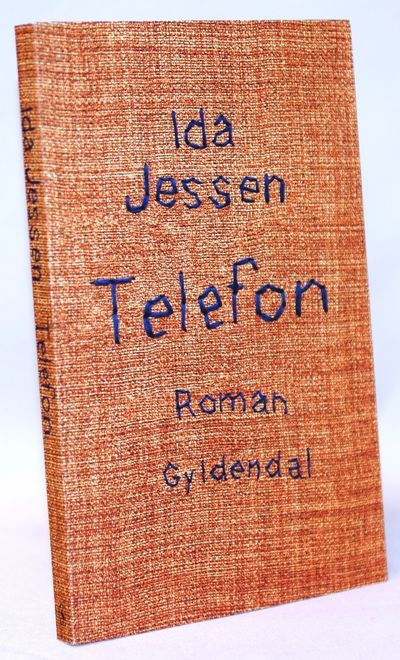 Ida
Jessen
Telefon
Roman
Gyldendal
Ida Jessen Telefon